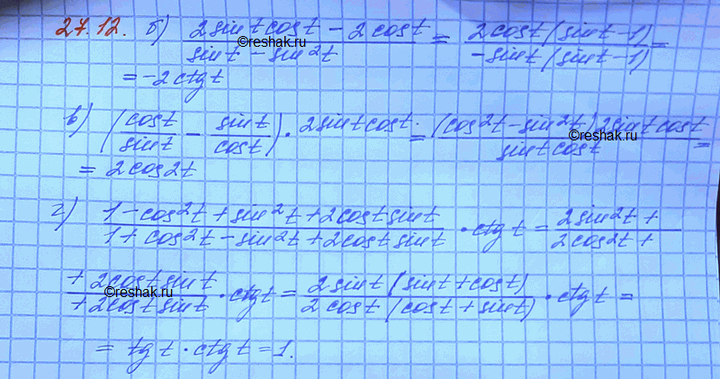 27.12. б) (2sintcost - 2cost)/(sint - sin²t) = (2cost(sint-1))/(-sint(sint-1)) =
= -2ctgt
в) (cost/sint - sint/cost) · 2sintcost = ((cos²t-sin²t)2sintcost)/(sintcost) =
= 2cos2t
г) (1-cos²t+sin²t+2costsint)/(1+cos²t-sin²t+2costsint) · ctgt = (2sin²t+)/(2cos²t+)
(+2costsint)/(+2costsint) · ctgt = (2sint(sint+cost))/(2cost(cost+sint)) · ctgt =
= tgt · ctgt = 1.
©reshak.ru
©reshak.ru
©reshak.ru